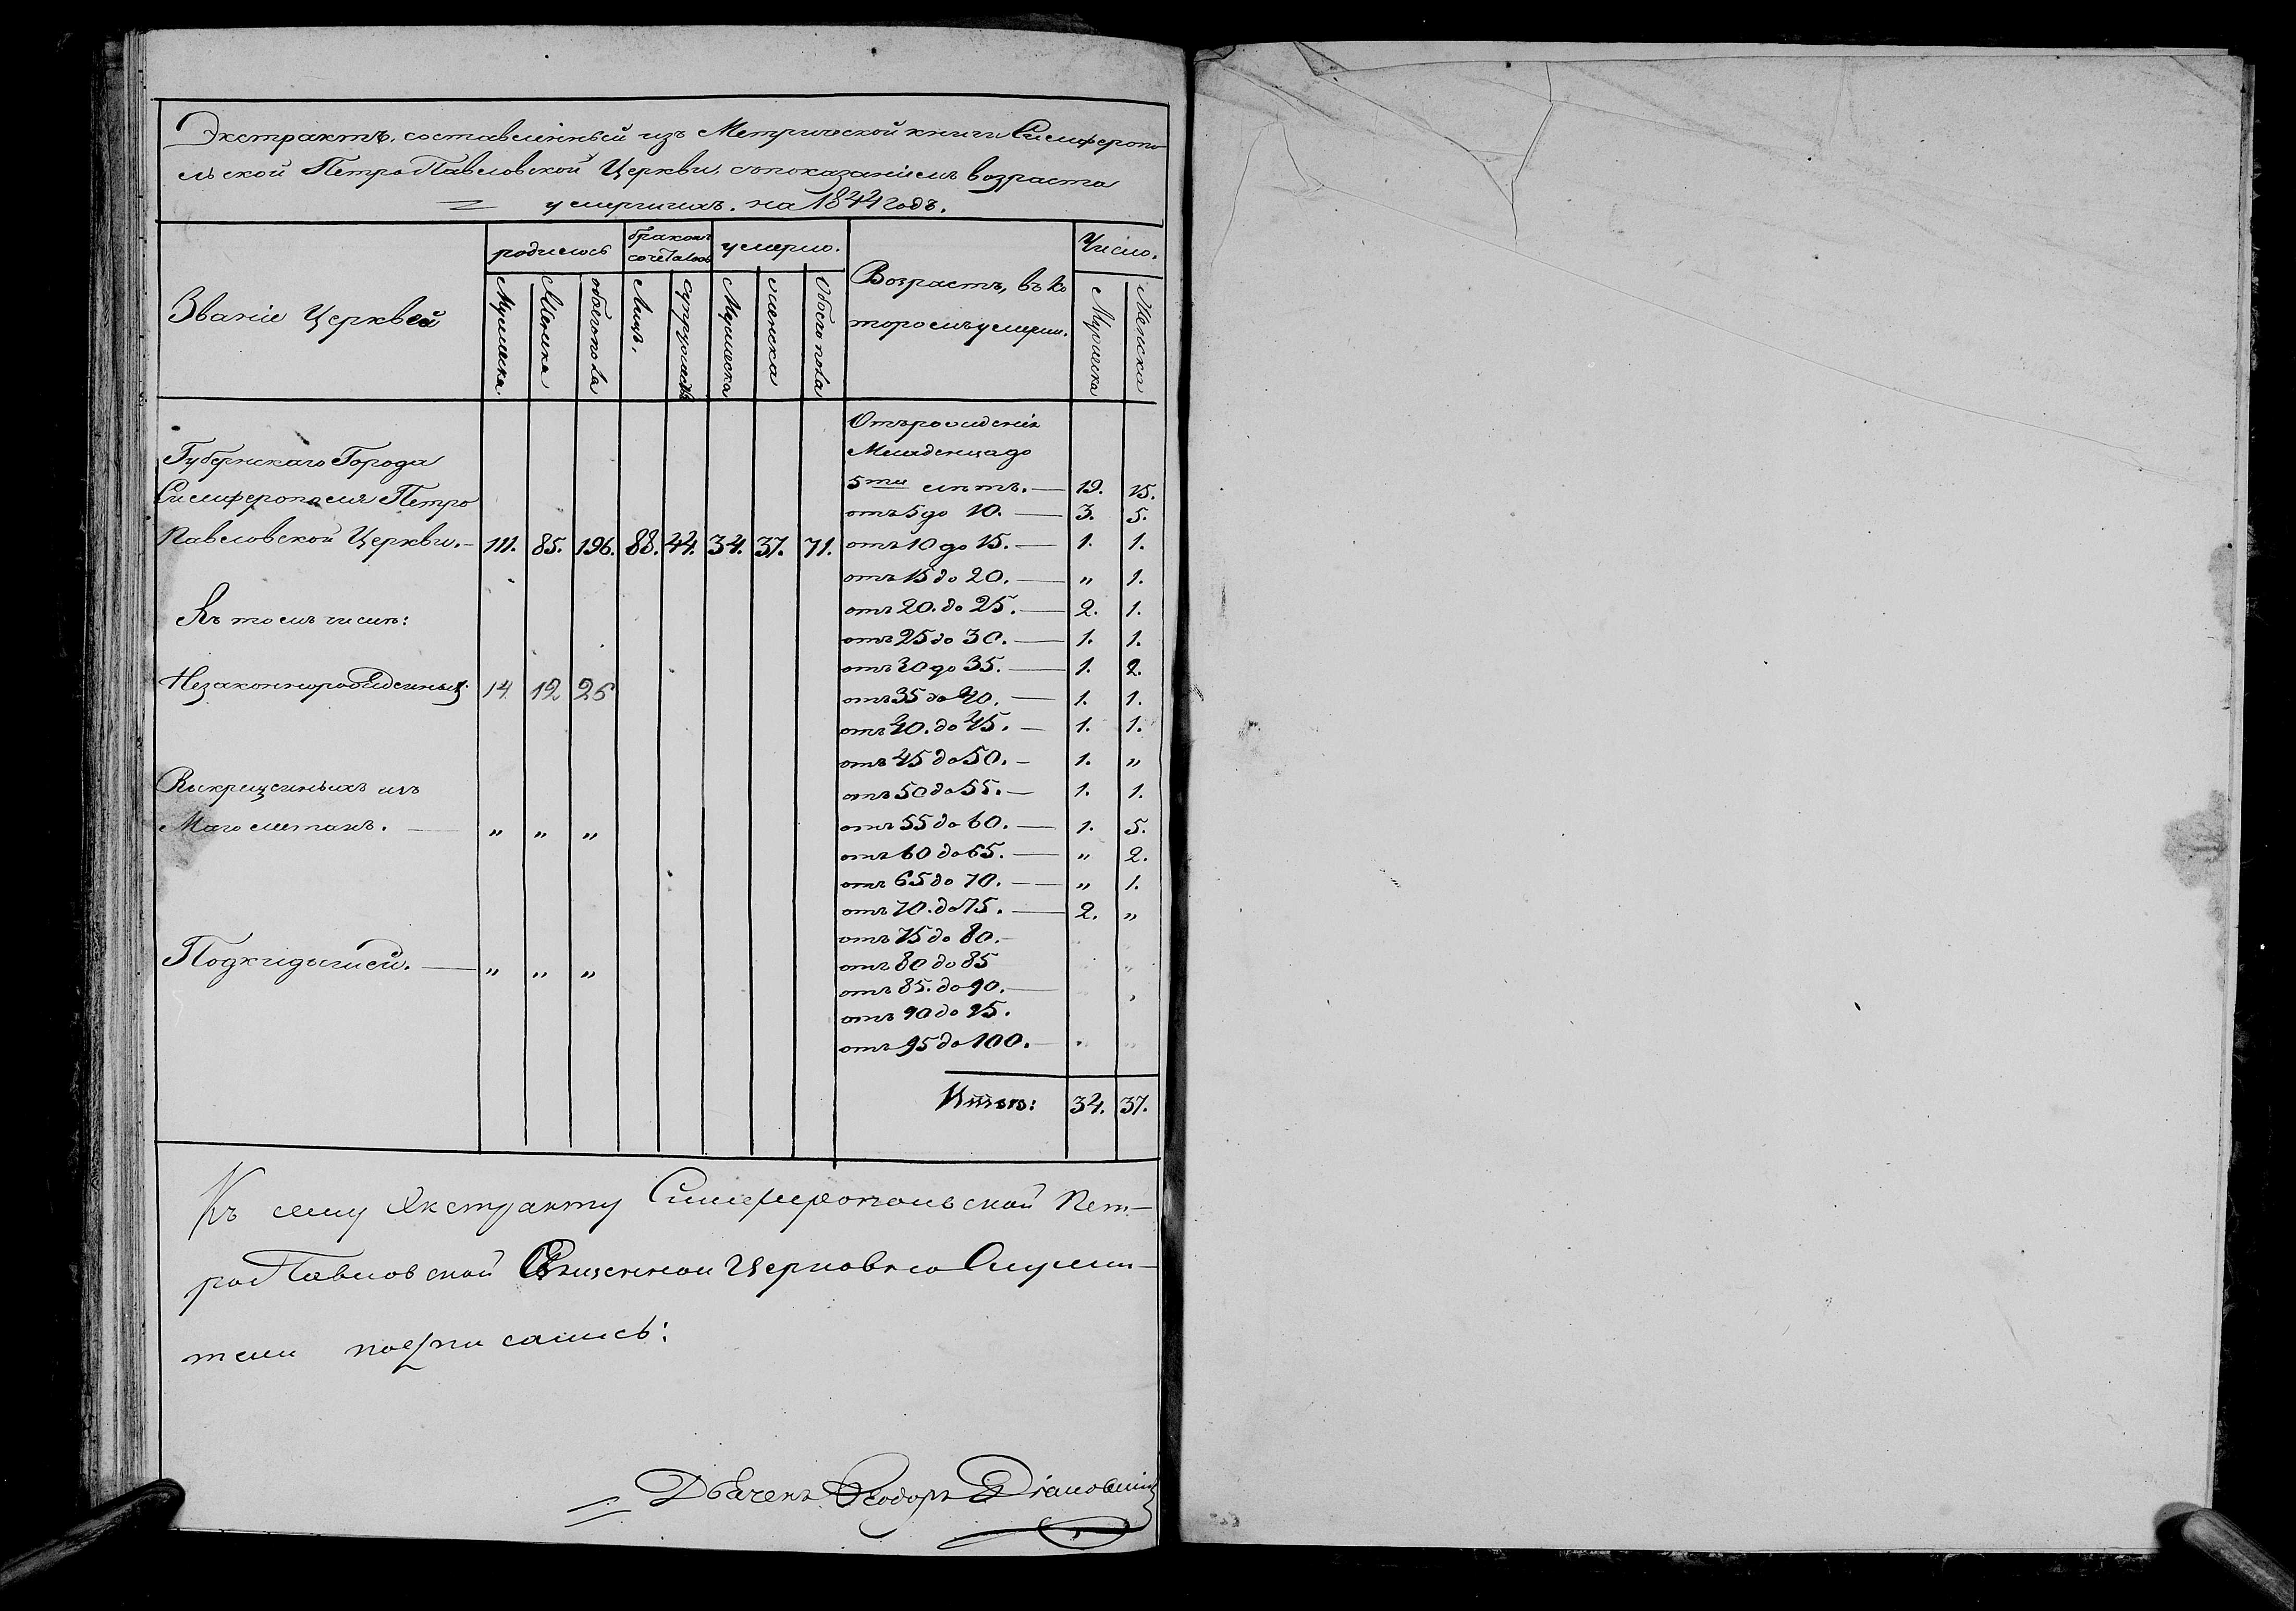 Экстрактъ, составленный изъ Метрической книги Симферопо
льской Петро Павловской Церкви, съ показаніемъ возраста
умершихъ. на 1844 годъ.
Званіе Церквей
родилось
бракомъ
сочеталось
умерло.
Возрастъ, въ ко
торомъ умерли.
Число.
Мужеска
Женска
обоего пола
Лицъ.
супружествъ
Мужеска
женска
Обоего пола
Мужеска
Женска
Губернскаго Города
Симферополя Петро
Павловской Церкви. 111. 85. 196. 88. 44. 34. 37. 71.
Въ томъ числѣ:
Незаконнорожденныхъ 14. 12 26
Выкрещенныхъ изъ
Магометанъ. — " " "
Подкидышей. — " " "
Отъ рожденія
Младенца до
5ти лѣтъ. — 19. 15.
отъ 5 до 10. — 3. 5.
отъ 10 до 15. — 1. 1.
отъ 15 до 20. — " 1.
отъ 20. до 25. — 2. 1.
отъ 25 до 30. — 1. 1.
отъ 30 до 35. — 1. 2.
отъ 35 до 40. — 1. 1.
отъ 40. до 45. — 1. 1.
отъ 45 до 50. — 1. "
отъ 50 до 55. — 1. 1.
отъ 55 до 60. — 1. 5.
отъ 60 до 65. — " 2.
отъ 65 до 70. — " 1.
отъ 70. до 75. — 2. "
отъ 75 до 80. —
отъ 80 до 85
отъ 85. до 90. —
отъ 90 до 95.
отъ 95 до 100. —
Итого: 34. 37.
Къ сему Экстракту Симферопольской Пет-
ро Павловской Священно Церковно Служи-
тели подписались:
Дьячекъ Ѳеодоръ